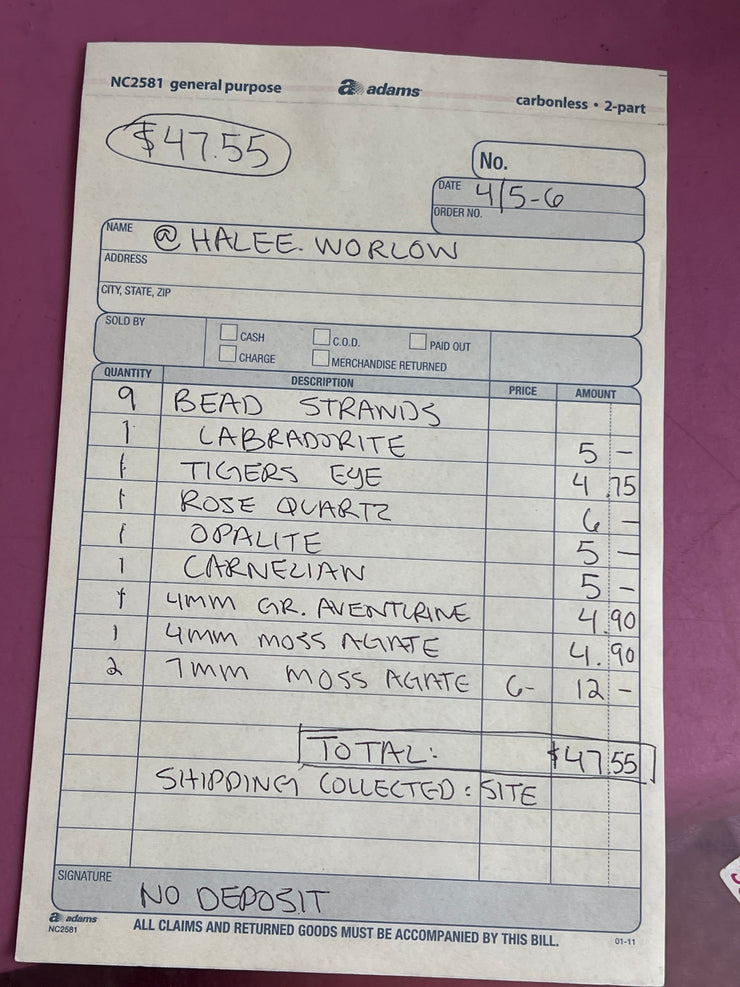 NC2581 general purpose
adams
carbonless • 2-part
$47.55
No.
DATE 4/5-6
ORDER NO.
NAME @HALEE.WORLOW
ADDRESS
CITY, STATE, ZIP
SOLD BY
CASH C.O.D. PAID OUT
CHARGE MERCHANDISE RETURNED
QUANTITY DESCRIPTION PRICE AMOUNT
9 BEAD STRANDS
1 LABRADORITE 5 –
1 TIGERS EYE 4.75
1 ROSE QUARTZ 6 –
1 OPALITE 5 –
1 CARNELIAN 5 –
1 4MM GR. AVENTURINE 4.90
1 4MM MOSS AGATE 4.90
2 7MM MOSS AGATE 6- 12 –
TOTAL: $47.55
SHIPPING COLLECTED: SITE
SIGNATURE
NO DEPOSIT
adams
NC2581
ALL CLAIMS AND RETURNED GOODS MUST BE ACCOMPANIED BY THIS BILL.
01-11